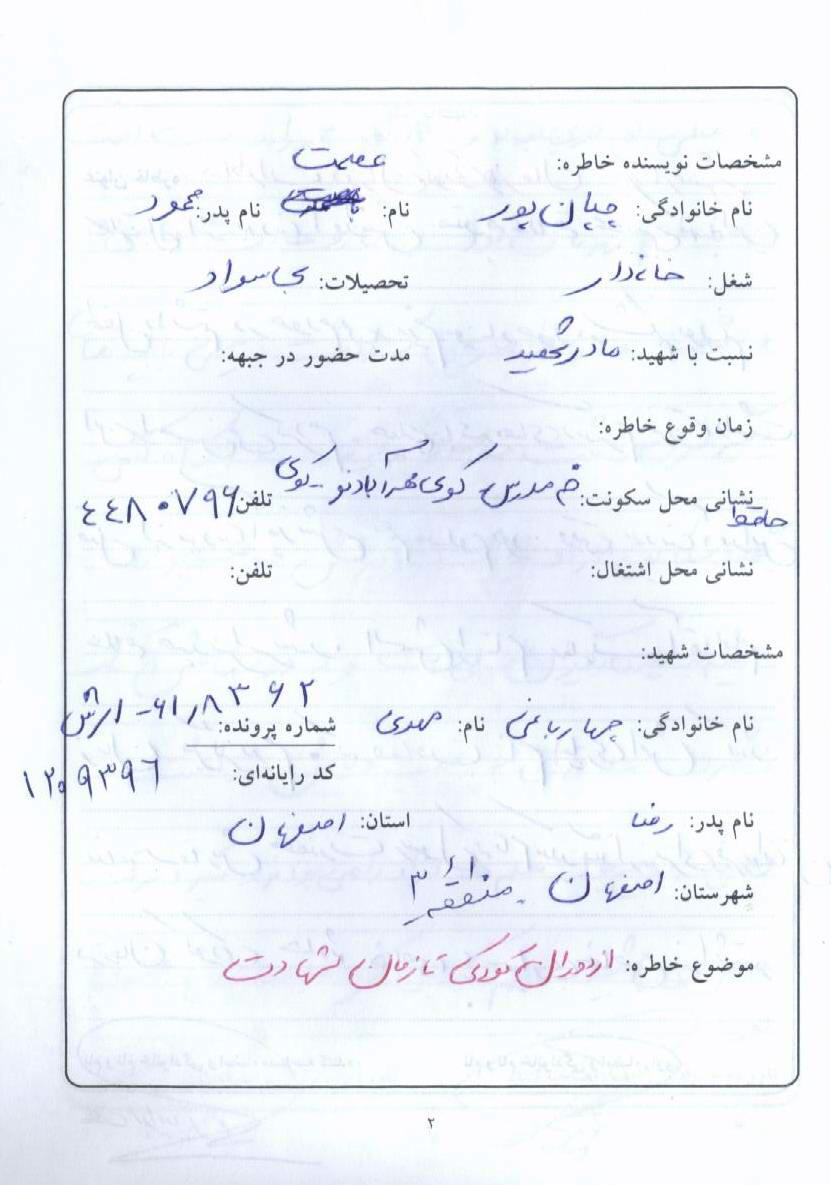 مشخصات نویسنده خاطره:
نام خانوادگی: چیان‌پور نام: عصمت نام پدر: محمود
شغل: خانه‌دار تحصیلات: بیسواد
نسبت با شهید: مادر شهید مدت حضور در جبهه:
زمان وقوع خاطره:
نشانی محل سکونت: خ مدرس کوی مهرآباد نو - کوی حافظ تلفن: ۴۴۸۰۷۹۶
نشانی محل اشتغال: تلفن:
مشخصات شهید:
نام خانوادگی: چهارباغی نام: مهدی شماره پرونده: ۶۱/۸۳۶۲ - ارتش
کد رایانه‌ای: ۱۲۰۹۳۹۶
نام پدر: رضا استان: اصفهان
شهرستان: اصفهان منطقه ۳
موضوع خاطره: از دوران کودکی تا زمان شهادت
۲